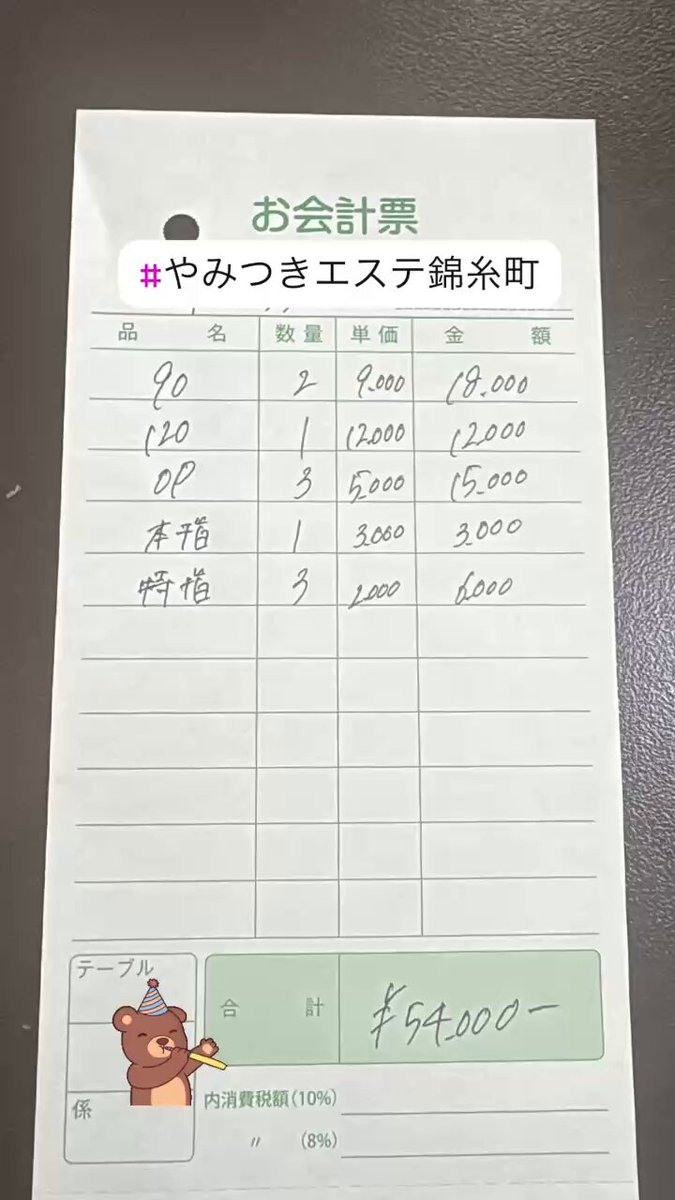 お会計票
#やみつきエステ錦糸町
品名 数量 単価 金額
90 2 9.000 18.000
120 1 12000 12000
OP 3 5,000 15.000
本指 1 3.000 3.000
特指 3 2.000 6.000
テーブル
合計 ¥54.000-
係
内消費税額(10%)
〃 (8%)